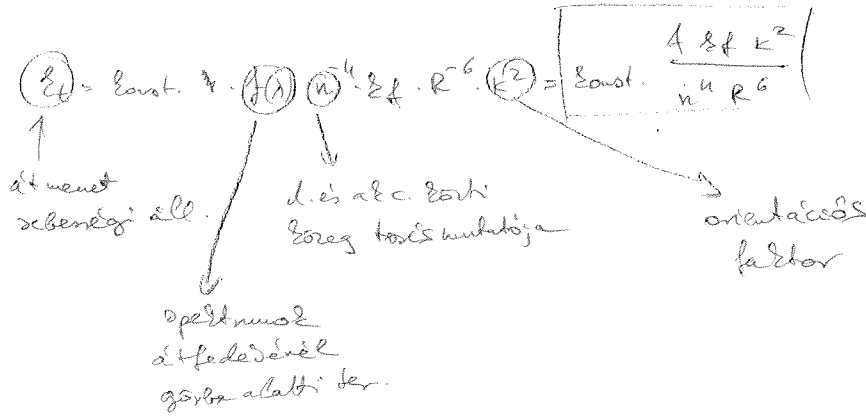 k_t = konst. · J(λ) n⁻⁴ · k_f · R⁻⁶ · κ² = konst. · J k_f κ² / n⁴ R⁶
átmenet
sebességi áll.
d. és akc. közti
közeg törésmutatója
orientációs
faktor
spektrumok
átfedésénél
görbe alatti ter.